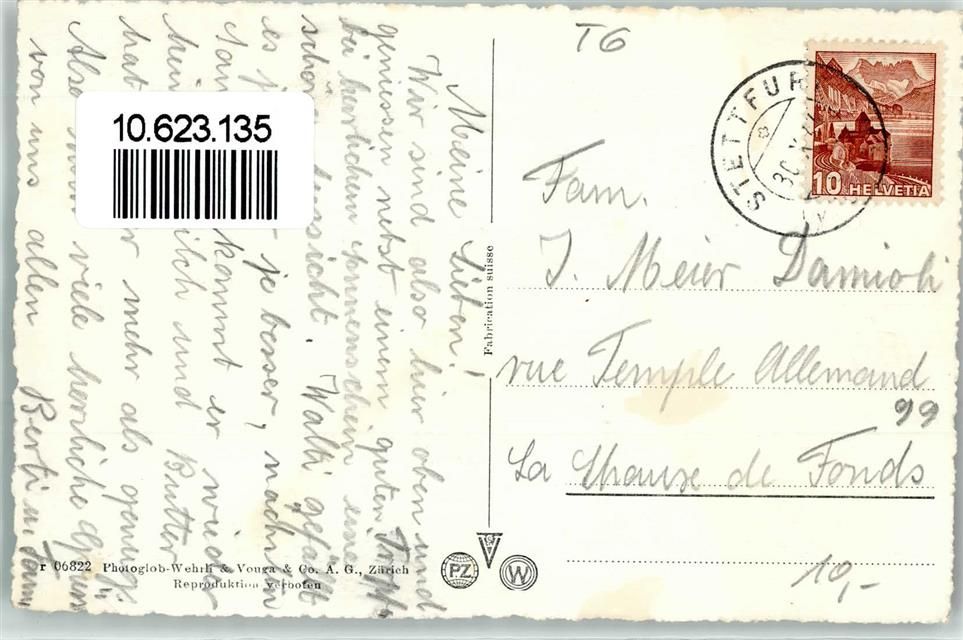 T6
STETTFURT
30.X.
10 HELVETIA
10.623.135
Meine Lieben!
Wir sind also hier oben und
geniessen nebst einem guten
bei herrlichem Sonnenschein eine
schöne Aussicht. Walti gefällt
es je besser, nachm
kommt er wieder
und Butter
hat mehr als genug.
Also viele herzliche Grüsse
von uns allen Berti u.
Fam.
J. Meier Damioli
rue Temple Allemand
99
La Chauxe de Fonds
Fabrication suisse
r 06822 Photoglob-Wehrli & Vouga & Co. A. G., Zürich
Reproduktion verboten
PZ
V
W
10,-